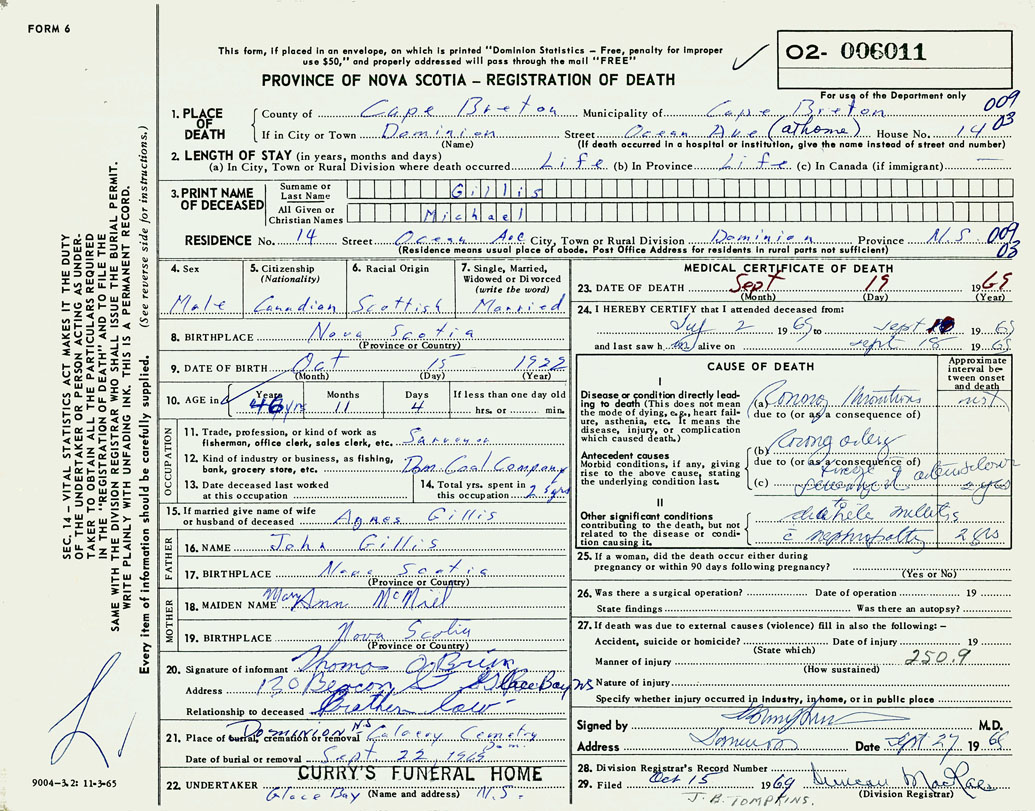 FORM 6
This form, if placed in an envelope, on which is printed "Dominion Statistics – Free, penalty for improper
use $50," and properly addressed will pass through the mail "FREE"
PROVINCE OF NOVA SCOTIA – REGISTRATION OF DEATH
02- 006011
For use of the Department only
009
03
1. PLACE OF DEATH
County of Cape Breton Municipality of Cape Breton
If in City or Town Dominion Street Ocean Ave (at home) House No. 14
(Name) (If death occurred in a hospital or institution, give the name instead of street and number)
2. LENGTH OF STAY (in years, months and days)
(a) In City, Town or Rural Division where death occurred Life (b) In Province Life (c) In Canada (if immigrant) —
3. PRINT NAME OF DECEASED
Surname or Last Name Gillis
All Given or Christian Names Michael
RESIDENCE No. 14 Street Ocean Ave City, Town or Rural Division Dominion Province N.S. 009
03
(Residence means usual place of abode. Post Office Address for residents in rural parts not sufficient)
4. Sex
Male
5. Citizenship
(Nationality)
Canadian
6. Racial Origin
Scottish
7. Single, Married,
Widowed or Divorced
(write the word)
Married
8. BIRTHPLACE Nova Scotia
(Province or Country)
9. DATE OF BIRTH Oct 15 1922
(Month) (Day) (Year)
10. AGE in Years 46 yrs Months 11 Days 4 If less than one day old
hrs. or min.
OCCUPATION
11. Trade, profession, or kind of work as
fisherman, office clerk, sales clerk, etc. Surveyor
12. Kind of industry or business, as fishing,
bank, grocery store, etc. Dom Coal Company
13. Date deceased last worked
at this occupation
14. Total yrs. spent in
this occupation 25 yrs
15. If married give name of wife
or husband of deceased Agnes Gillis
FATHER
16. NAME John Gillis
17. BIRTHPLACE Nova Scotia
(Province or Country)
MOTHER
18. MAIDEN NAME Mary Ann McNiel
19. BIRTHPLACE Nova Scotia
(Province or Country)
20. Signature of informant Thomas O'Brien
Address 130 Beacon St Glace Bay NS
Relationship to deceased Brother law
21. Place of burial, cremation or removal DOMINION N.S Calvary Cemetry
Dom.
Date of burial or removal Sept 22, 1969
CURRY'S FUNERAL HOME
22. UNDERTAKER Glace Bay (Name and address) N.S.
MEDICAL CERTIFICATE OF DEATH
23. DATE OF DEATH Sept 19 1969
(Month) (Day) (Year)
24. I HEREBY CERTIFY that I attended deceased from:
2 1969 to Sept 1969
and last saw h im alive on Sept 18 1969
CAUSE OF DEATH
Approximate interval between onset and death
I
Disease or condition directly leading
to death (This does not mean
the mode of dying, e.g., heart failure,
asthenia, etc. It means the
disease, injury, or complication
which caused death.)
(a)
due to (or as a consequence of)
Antecedent causes
Morbid conditions, if any, giving
rise to the above cause, stating
the underlying condition last.
(b)
due to (or as a consequence of)
(c)
II
Other significant conditions
contributing to the death, but not
related to the disease or condition
causing it.
mellitis
c nephropathy 2 yrs
25. If a woman, did the death occur either during
pregnancy or within 90 days following pregnancy?
(Yes or No)
26. Was there a surgical operation? Date of operation 19
State findings Was there an autopsy?
27. If death was due to external causes (violence) fill in also the following: –
Accident, suicide or homicide? Date of injury 19
(State which)
Manner of injury 250.9
(How sustained)
Nature of injury
Specify whether injury occurred in industry, in home, or in public place
Signed by M.D.
Address Dominion Date Sept 27 1969
28. Division Registrar's Record Number
29. Filed Oct 15 1969 Duncan MacRae
(Division Registrar)
J.B. TOMPKINS.
SEC. 14 – VITAL STATISTICS ACT MAKES IT THE DUTY
OF THE UNDERTAKER OR PERSON ACTING AS UNDER-
TAKER TO OBTAIN ALL THE PARTICULARS REQUIRED
IN THE "REGISTRATION OF DEATH" AND TO FILE THE
SAME WITH THE DIVISION REGISTRAR WHO SHALL ISSUE THE BURIAL PERMIT.
WRITE PLAINLY WITH UNFADING INK. THIS IS A PERMANENT RECORD.
Every item of information should be carefully supplied. (See reverse side for instructions.)
9004-3.2: 11-3-65